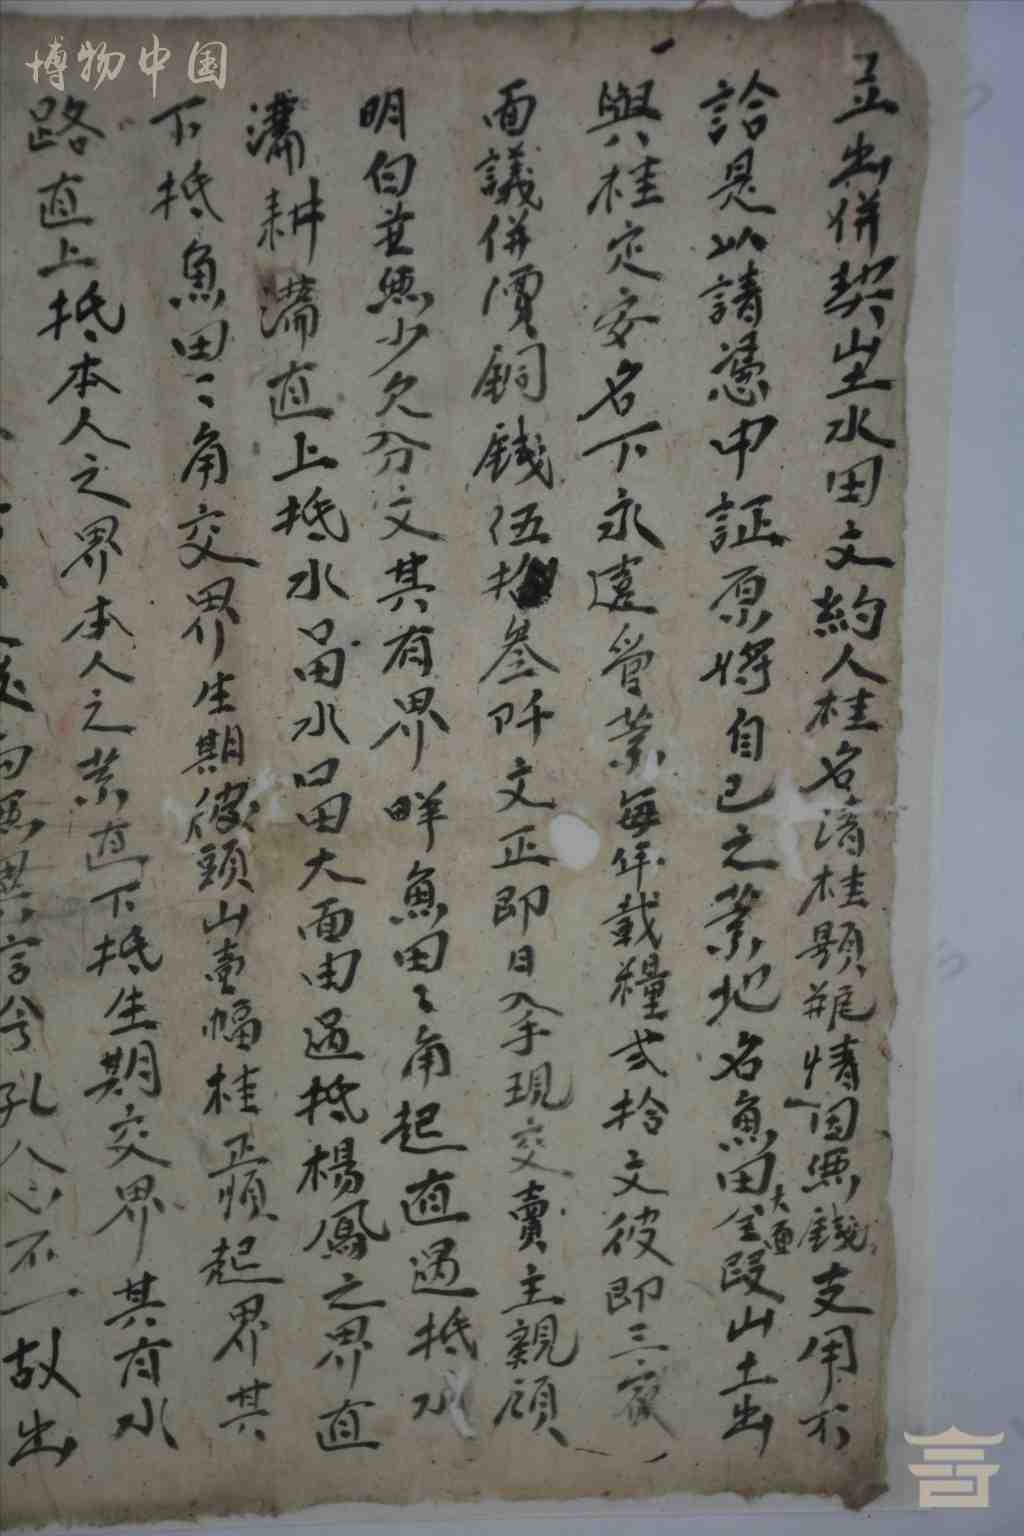 博物中国
立出併契山土水田文約人桂名濤桂顕範情因無錢支用不
詥是以請憑中証原將自己之業地名魚田大壟全段山土出
與桂定安名下永遠管業每年載糧弍拾文彼即三家
面議併價銅錢伍拾叁阡文正即日入手現交賣主親領
明白並無少欠分文其有界畔魚田〻角起直過抵水
溝耕溝直上抵水畓田水口畓田大面由過抵楊鳳之界直
下抵魚田〻角交界生期彼頭山壹幅桂正順起界其
路直上抵本人之界本人之業直下抵生期交界其有水
無異言今孔人心不一故出